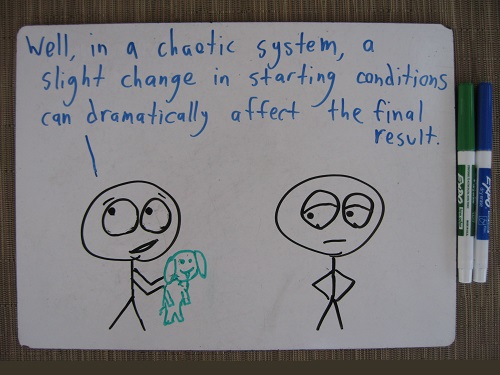 Well, in a chaotic system, a
slight change in starting conditions
can dramatically affect the final
result.
EXPO
EXPO